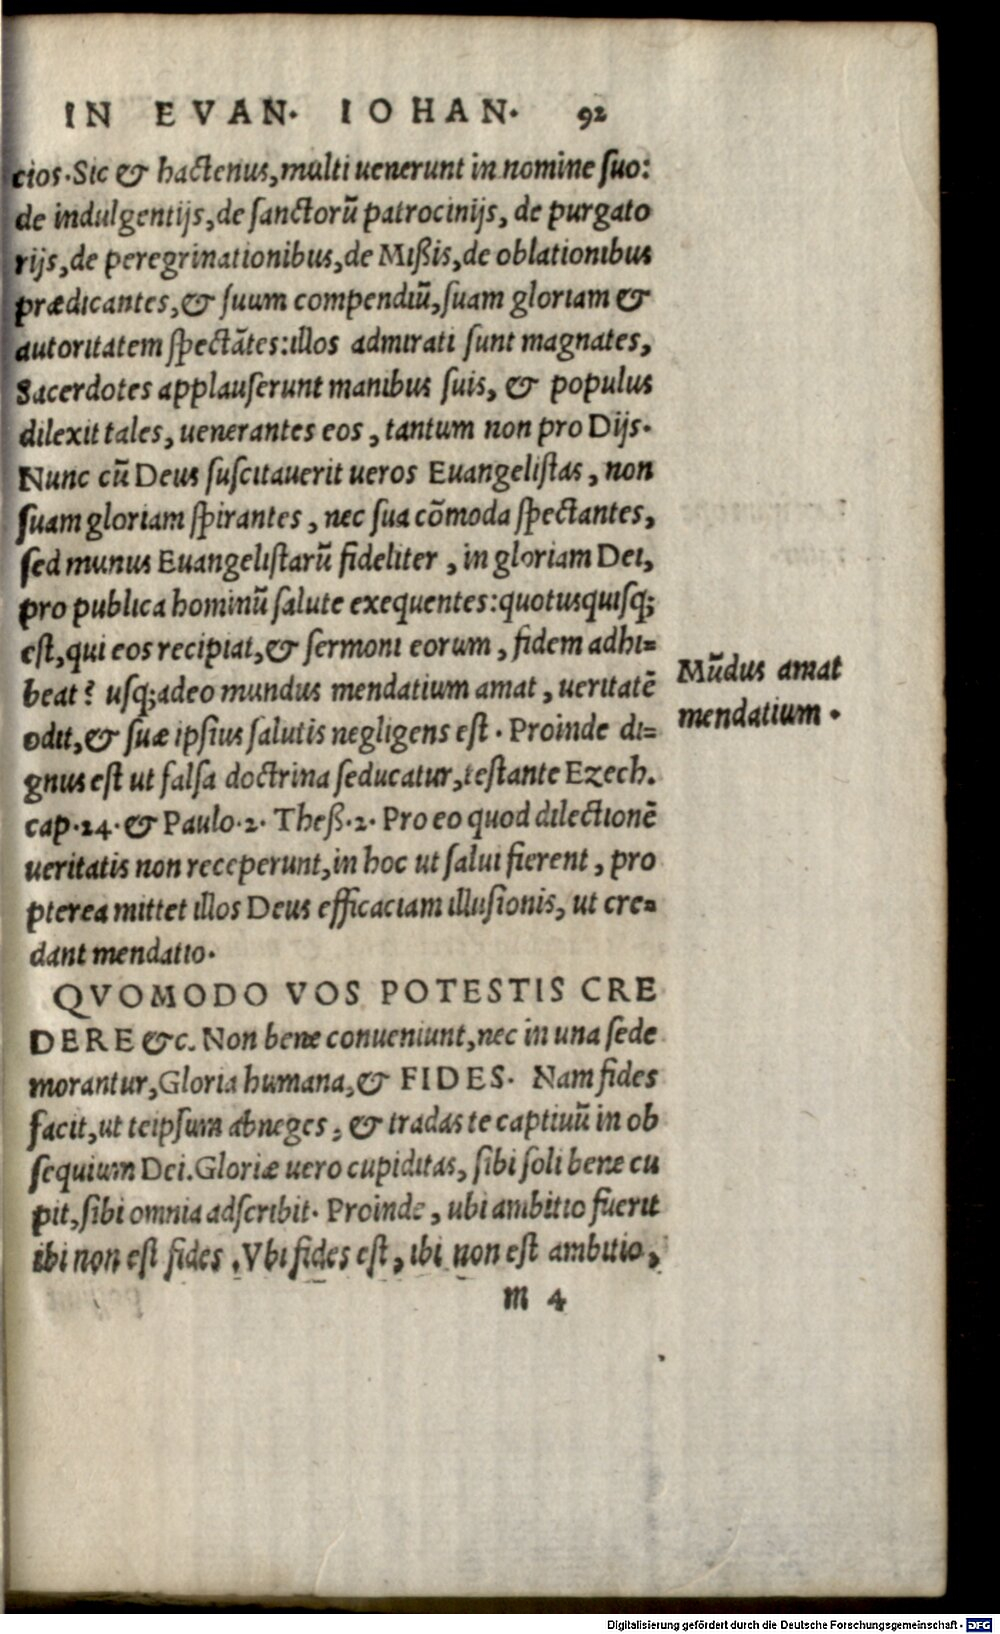 IN EVAN. IOHAN. 92
cios. Sic & hactenus, multi uenerunt in nomine suo:
de indulgentijs, de sanctorū patrocinijs, de purgato
rijs, de peregrinationibus, de Mißis, de oblationibus
prædicantes, & suum compendiū, suam gloriam &
autoritatem spectātes: illos admirati sunt magnates,
Sacerdotes applauserunt manibus suis, & populus
dilexit tales, uenerantes eos, tantum non pro Dijs.
Nunc cū Deus suscitauerit ueros Euangelistas, non
suam gloriam spirantes, nec sua cōmoda spectantes,
sed munus Euangelistarū fideliter, in gloriam Dei,
pro publica hominū salute exequentes: quotusquisq;
est, qui eos recipiat, & sermoni eorum, fidem adhi=
beat? usq; adeo mundus mendatium amat, ueritatē
odit, & suæ ipsius salutis negligens est. Proinde di=
gnus est ut falsa doctrina seducatur, testante Ezech.
cap. 14. & Paulo. 2. Theß. 2. Pro eo quod dilectionē
ueritatis non receperunt, in hoc ut salui fierent, pro
pterea mittet illos Deus efficaciam illusionis, ut cre=
dant mendatio.
Mūdus amat
mendatium.
QVOMODO VOS POTESTIS CRE
DERE &c. Non bene conueniunt, nec in una sede
morantur, Gloria humana, & FIDES. Nam fides
facit, ut teipsum abneges, & tradas te captiuū in ob
sequium Dei. Gloriæ uero cupiditas, sibi soli bene cu
pit, sibi omnia adscribit. Proinde, ubi ambitio fuerit
ibi non est fides. Vbi fides est, ibi non est ambitio,
m 4
Digitalisierung gefördert durch die Deutsche Forschungsgemeinschaft - DFG